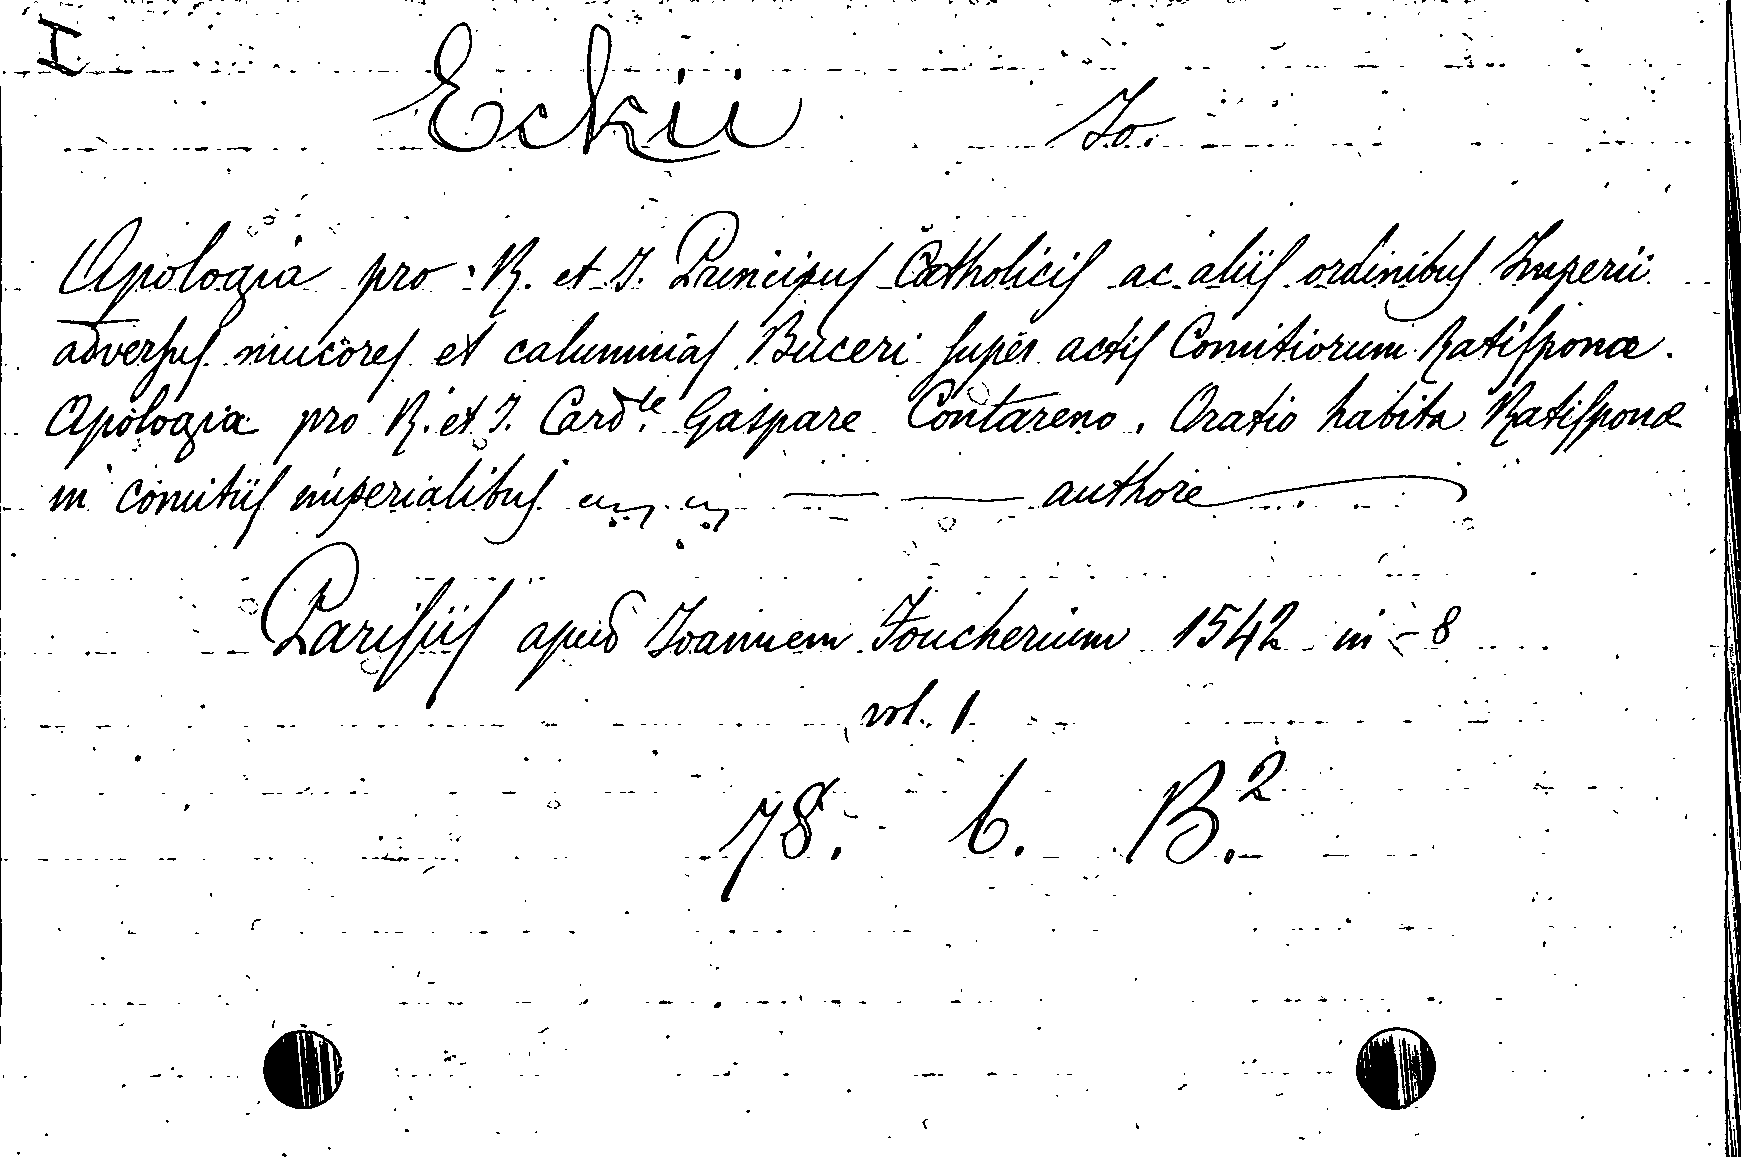 I
Eckii Jo.
Apologia pro R. et I. Principus Catholicis ac aliis ordinibus Imperii
adversus mucores et calumnias Buceri super actis Comitiorum Ratisponæ.
Apologia pro R. et I. Card.le Gaspare Contareno. Oratio habita Ratisponæ
in comitiis imperialibus — — authore
Parisiis apud Joannem Foucherium 1542 in-8
vol. 1
78. 6. B.2